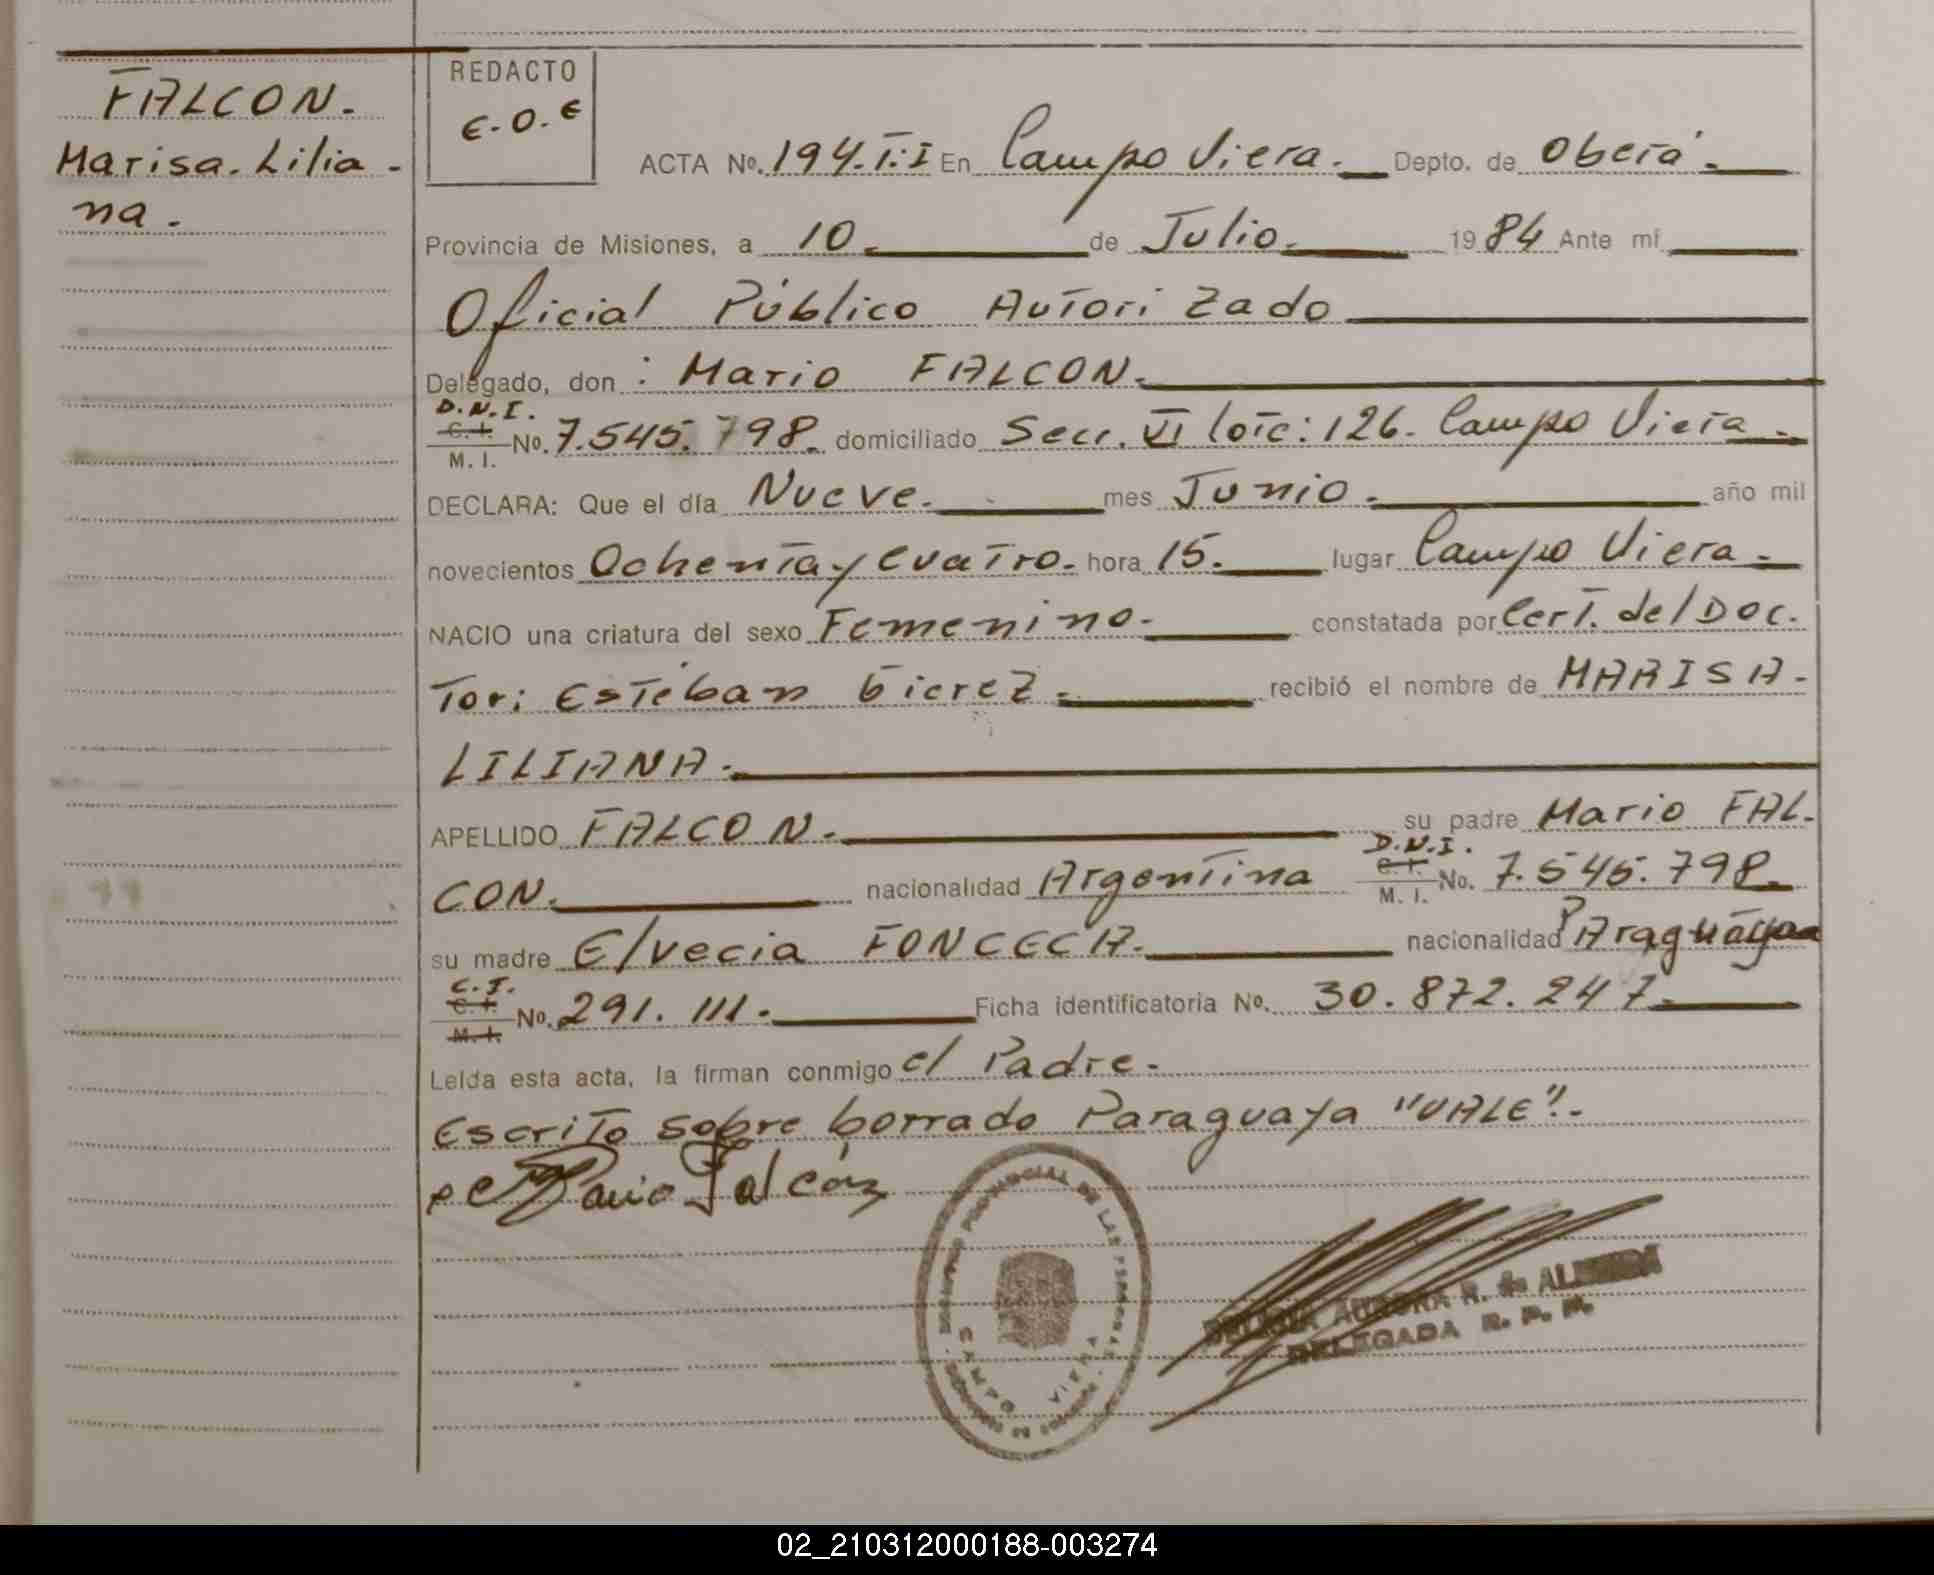 FALCON.
Marisa. Lilia-
na.
REDACTO
E.O.E
ACTA No. 194.T:I En Campo Viera. Depto. de Oberá.
Provincia de Misiones, a 10. de Julio. 1984 Ante mí
Oficial Público Autorizado
Delegado, don: Mario FALCON.
D.N.I.
C. I. M. I. No. 7.545.798. domiciliado Secc. VI lote: 126. Campo Viera.
DECLARA: Que el día Nueve. mes Junio. año mil
novecientos Ochenta y Cuatro. hora 15. lugar Campo Viera.
NACIO una criatura del sexo Femenino. constatada por Cert. del Doc.
Tor: Esteban Gierez. recibió el nombre de MARISA.
LILIANA.
APELLIDO FALCON. su padre Mario FAL-
CON. nacionalidad Argentina D.N.I. C. I. M. I. No. 7.545.798.
su madre Elvecia FONCECA. nacionalidad Paraguaya
C.I.
C. I. M. I. No. 291.111. Ficha identificatoria No. 30.872.247.
Leída esta acta, la firman conmigo el Padre.
Escrito sobre borrado Paraguaya "VALE".-
Mario Falcón
PROVINCIAL DE LAS PERSONAS
CAMPO VIERA
AURORA R. de ALMEIDA
DELEGADA R. P. P.
02_210312000188-003274